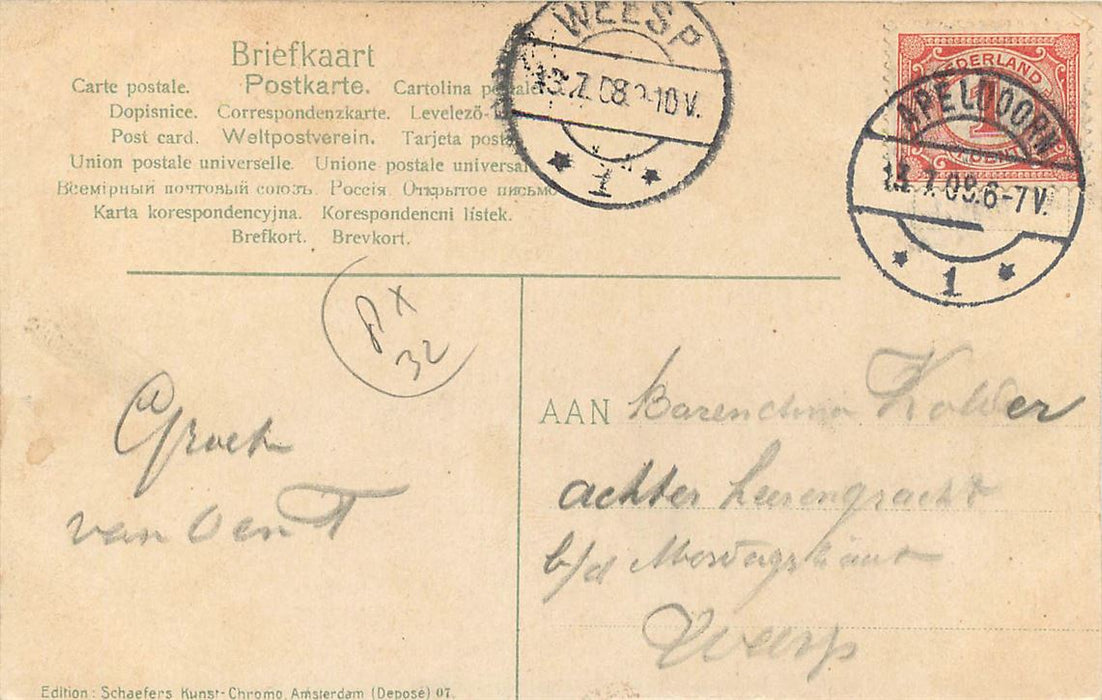 Briefkaart
Carte postale. Postkarte. Cartolina
Dopisnice. Correspondenzkarte. Levelező-
Post card. Weltpostverein. Tarjeta
Union postale universelle. Unione postale
Всемірный почтовый союзъ. Россія. Открытое письмо
Karta korespondencyjna. Korespondencni listek.
Brefkort. Brevkort.
WEESP
13.7.08. -10V.
1
NEDERLAND
1
CENT
APELDOORN
7.08.6-7V.
1
32
Groet
van
AAN Barendina Kolder
achter heerengracht
b/d
Weesp
Edition: Schaefers Kunst-Chromo, Amsterdam (Deposé) 07.